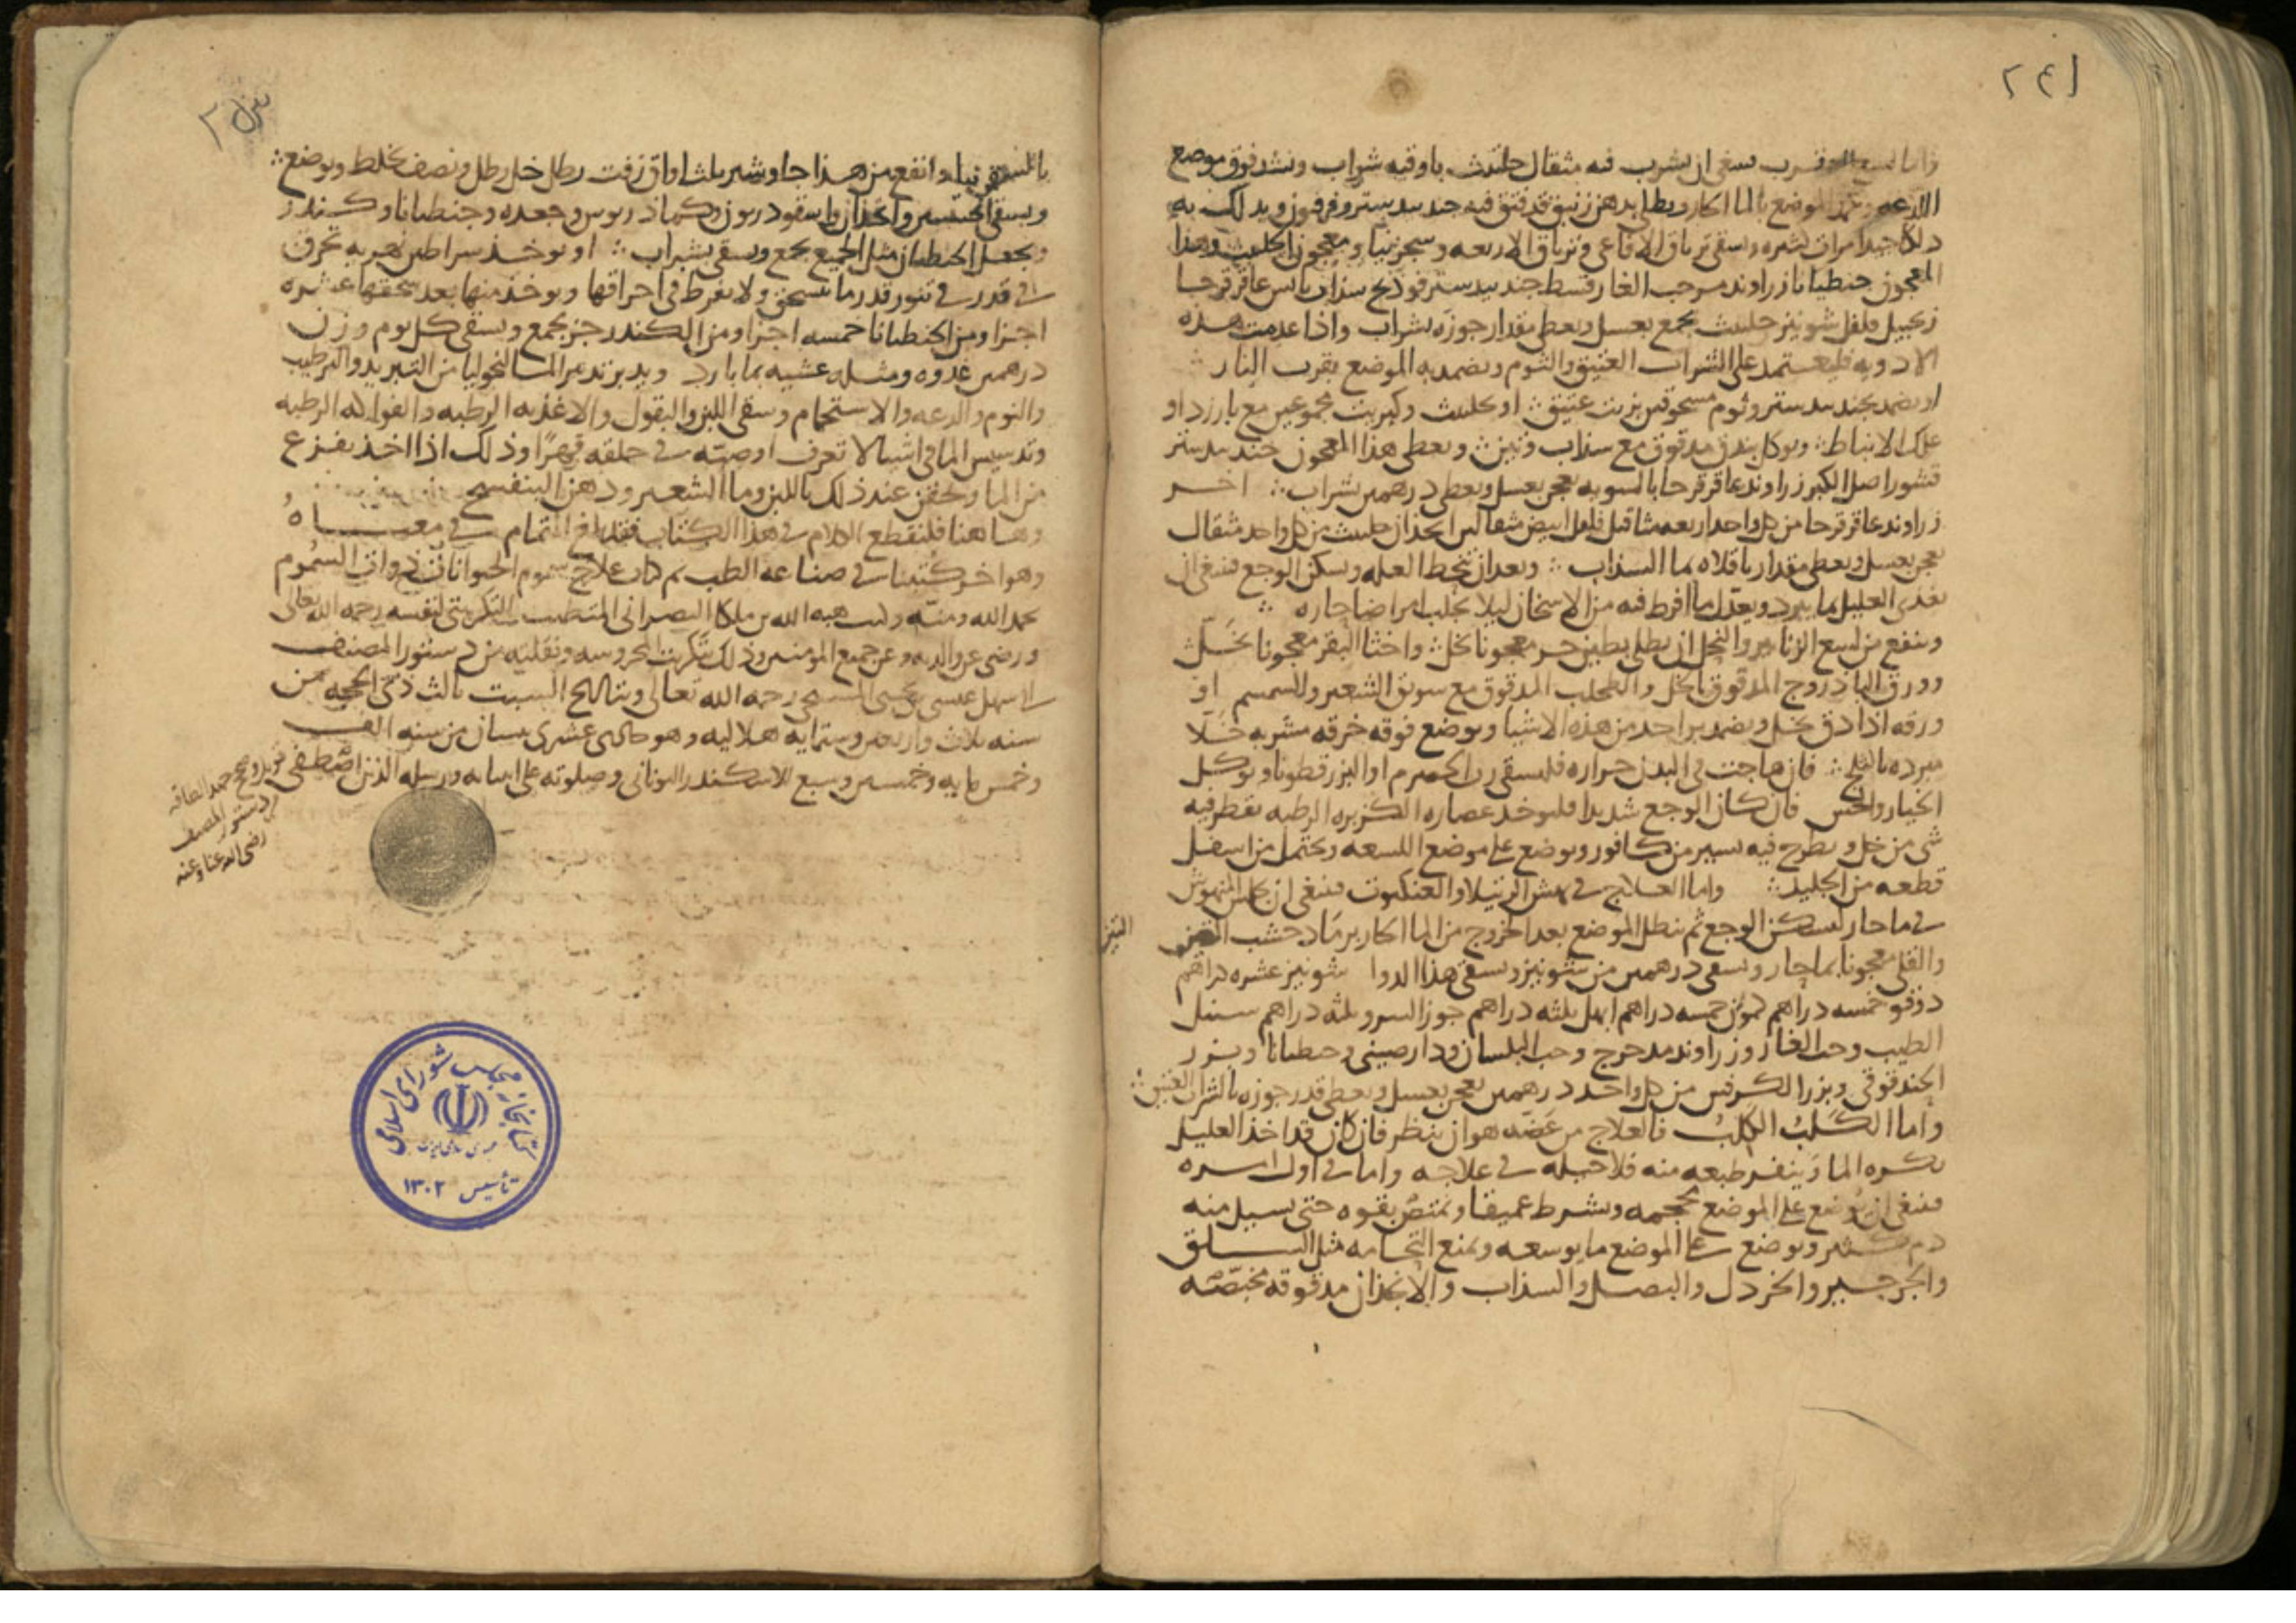 ٢٤١
واما لسع العقرب ينبغي ان يشرب فيه مثقال حلتيت باوقيه شراب ويشد فوق موضع
اللدغه الموضع بالما الحار ويطلى بدهن زنبق قد فتق فيه جندبيدستر وفرفيون ويدلك به
دلكا جيدا مرات كثيره ويسقى ترياق الافاعي وترياق الاربعه وسجزنيا ومعجون الحلتيت وهذا
المعجون جنطيانا زراوند مر حب الغار قسط جندبيدستر فودنج سذاب يابس عاقرقرحا
زنجبيل فلفل شونيز حلتيت يجمع بعسل ويعطى مقدار جوزه بشراب واذا عدمت هذه
الادويه فليعتمد على الشراب العتيق والثوم ويضمد به الموضع بقرب النار
او يضمد بجندبيدستر وثوم مسحوقين بزيت عتيق او بحلتيت وكبريت مجموعين مع بارزد او
علك الانباط ويوكل بندق مدقوق مع سذاب وتين ويعطى هذا المعجون جندبيدستر
قشور اصل الكبر زراوند عاقرقرحا بالسويه يعجن بعسل ويعطى درهمين بشراب اخر
زراوند عاقرقرحا من كل واحد اربعه مثاقيل فلفل ابيض مثقالين انجذان حلتيت من كل واحد مثقال
يعجن بعسل ويعطى مقدار باقلاه بما السذاب وبعد ان تنحط العله ويسكن الوجع فينبغي ان
يغذى العليل بما يبرد ويعدل ما افرط فيه من الاسخان ليلا يجلب امراضا حاره
وينفع من لسع الزنابير والنحل ان يطلى بطين حر معجونا بخل واخثا البقر معجونا بخل
وورق الباذروج المدقوق بالخل والطحلب المدقوق مع سويق الشعير والسمسم او
ورقه اذا دق بخل ويضمد بواحد من هذه الاشيا ويوضع فوقه خرقه مشربه خلا
مبرده بالثلج فان هاجت في البدن حراره فليسقى رب الحصرم او البزرقطونا ويوكل
الخيار والخس فان كان الوجع شديدا فليوخذ عصاره الكزبره الرطبه يقطر فيه
شي من خل ويطرح فيه يسير من كافور ويوضع على موضع اللسعه ويحتمل من اسفل
قطعه من الجليد واما العلاج في نهش الرتيلا والعنكبوت فينبغي ان يجلس المنهوش
في ما حار ليسكن الوجع ثم ينطل الموضع بعد الخروج من الما الحار برماد خشب التين
التين
والقلي معجونا بما حار ويسقى درهمين من شونيز ويسقى هذا الدوا شونيز عشره دراهم
دوقو خمسه دراهم كمون خمسه دراهم ابهل ثلثه دراهم جوز السرو ثلثه دراهم سنبل
الطيب وحب الغار وزراوند مدحرج وحب البلسان ودارصيني وجنطيانا وبزر
الحندقوقى وبزر الكرفس من كل واحد درهمين يعجن بعسل ويعطى قدر جوزه بالشراب العتيق
واما الكلب الكلب فالعلاج من عضه هو ان ينظر فان كان قد اخذ العليل
يكره الما وينفر طبعه منه فلا حيله في علاجه واما في اول امره
فينبغي ان يوضع على الموضع محجمه ويشرط عميقا ويمتص بقوه حتى يسيل منه
دم كثير ويوضع على الموضع ما يوسعه ويمنع التحامه مثل السلق
والجرجير والخردل والبصل والسذاب والانجذان مدقوقه مخبصه
بالسمن وانفع من هذا جاوشير ثلث اواق زفت رطل خل رطل ونصف يخلط ويوضع
ويسقى واسقورديون وكماذريوس وجعده وجنطيانا وكندر
ويجعل الجنطيانا مثل الجميع يجمع ويسقى بشراب او يوخذ سراطين نهريه تحرق
في قدر في تنور قدر ما تنسحق ولا يفرط في احراقها ويوخذ منها بعد سحقها عشره
اجزا ومن الجنطيانا خمسه اجزا ومن الكندر جز يجمع ويسقى كل يوم وزن
درهمين غدوه ومثله عشيه بما بارد ويدبر تدبير المالنخوليا من التبريد والترطيب
والنوم والدعه والاستحمام وسقي اللبن والبقول والاغذيه الرطبه والفواكه الرطبه
وتدسيس الما في اشيا لا تعرف او صبه في حلقه قهرا وذلك اذا اخذ يفزع
من الما ويحقن عند ذلك باللبن وما الشعير ودهن البنفسج
وها هنا فلنقطع الكلام في هذا الكتاب فقد بلغ التمام في معناه
وهو اخر كتبنا في صناعه الطب تم كتاب علاج سموم الحيوانات ذوات السموم
بحمد الله ومنه وكتب هبه الله بن ملكا النصراني المتطبب التكريتي لنفسه رحمه الله تعالى
ورضي عن والديه وعن جميع المومنين وذلك بتكريت المحروسه ونقلته من دستور المصنف
ابي سهل عيسى بن يحيى المسيحي رحمه الله تعالى وبتاريخ السبت ثالث ذي الحجه من
سنه ثلاث واربعين وستمايه هلاليه وهو حادي عشري نيسان من سنه الف
وخمس مايه وخمسين وسبع للاسكندر اليوناني وصلوته على انبيايه ورسله الذين اصطفى
قوبل وصح بحمد الله
من دستور المصنف
رضي الله عنا وعنه
كتابخانه مجلس شورای اسلامی
تأسیس ١٣٠٢